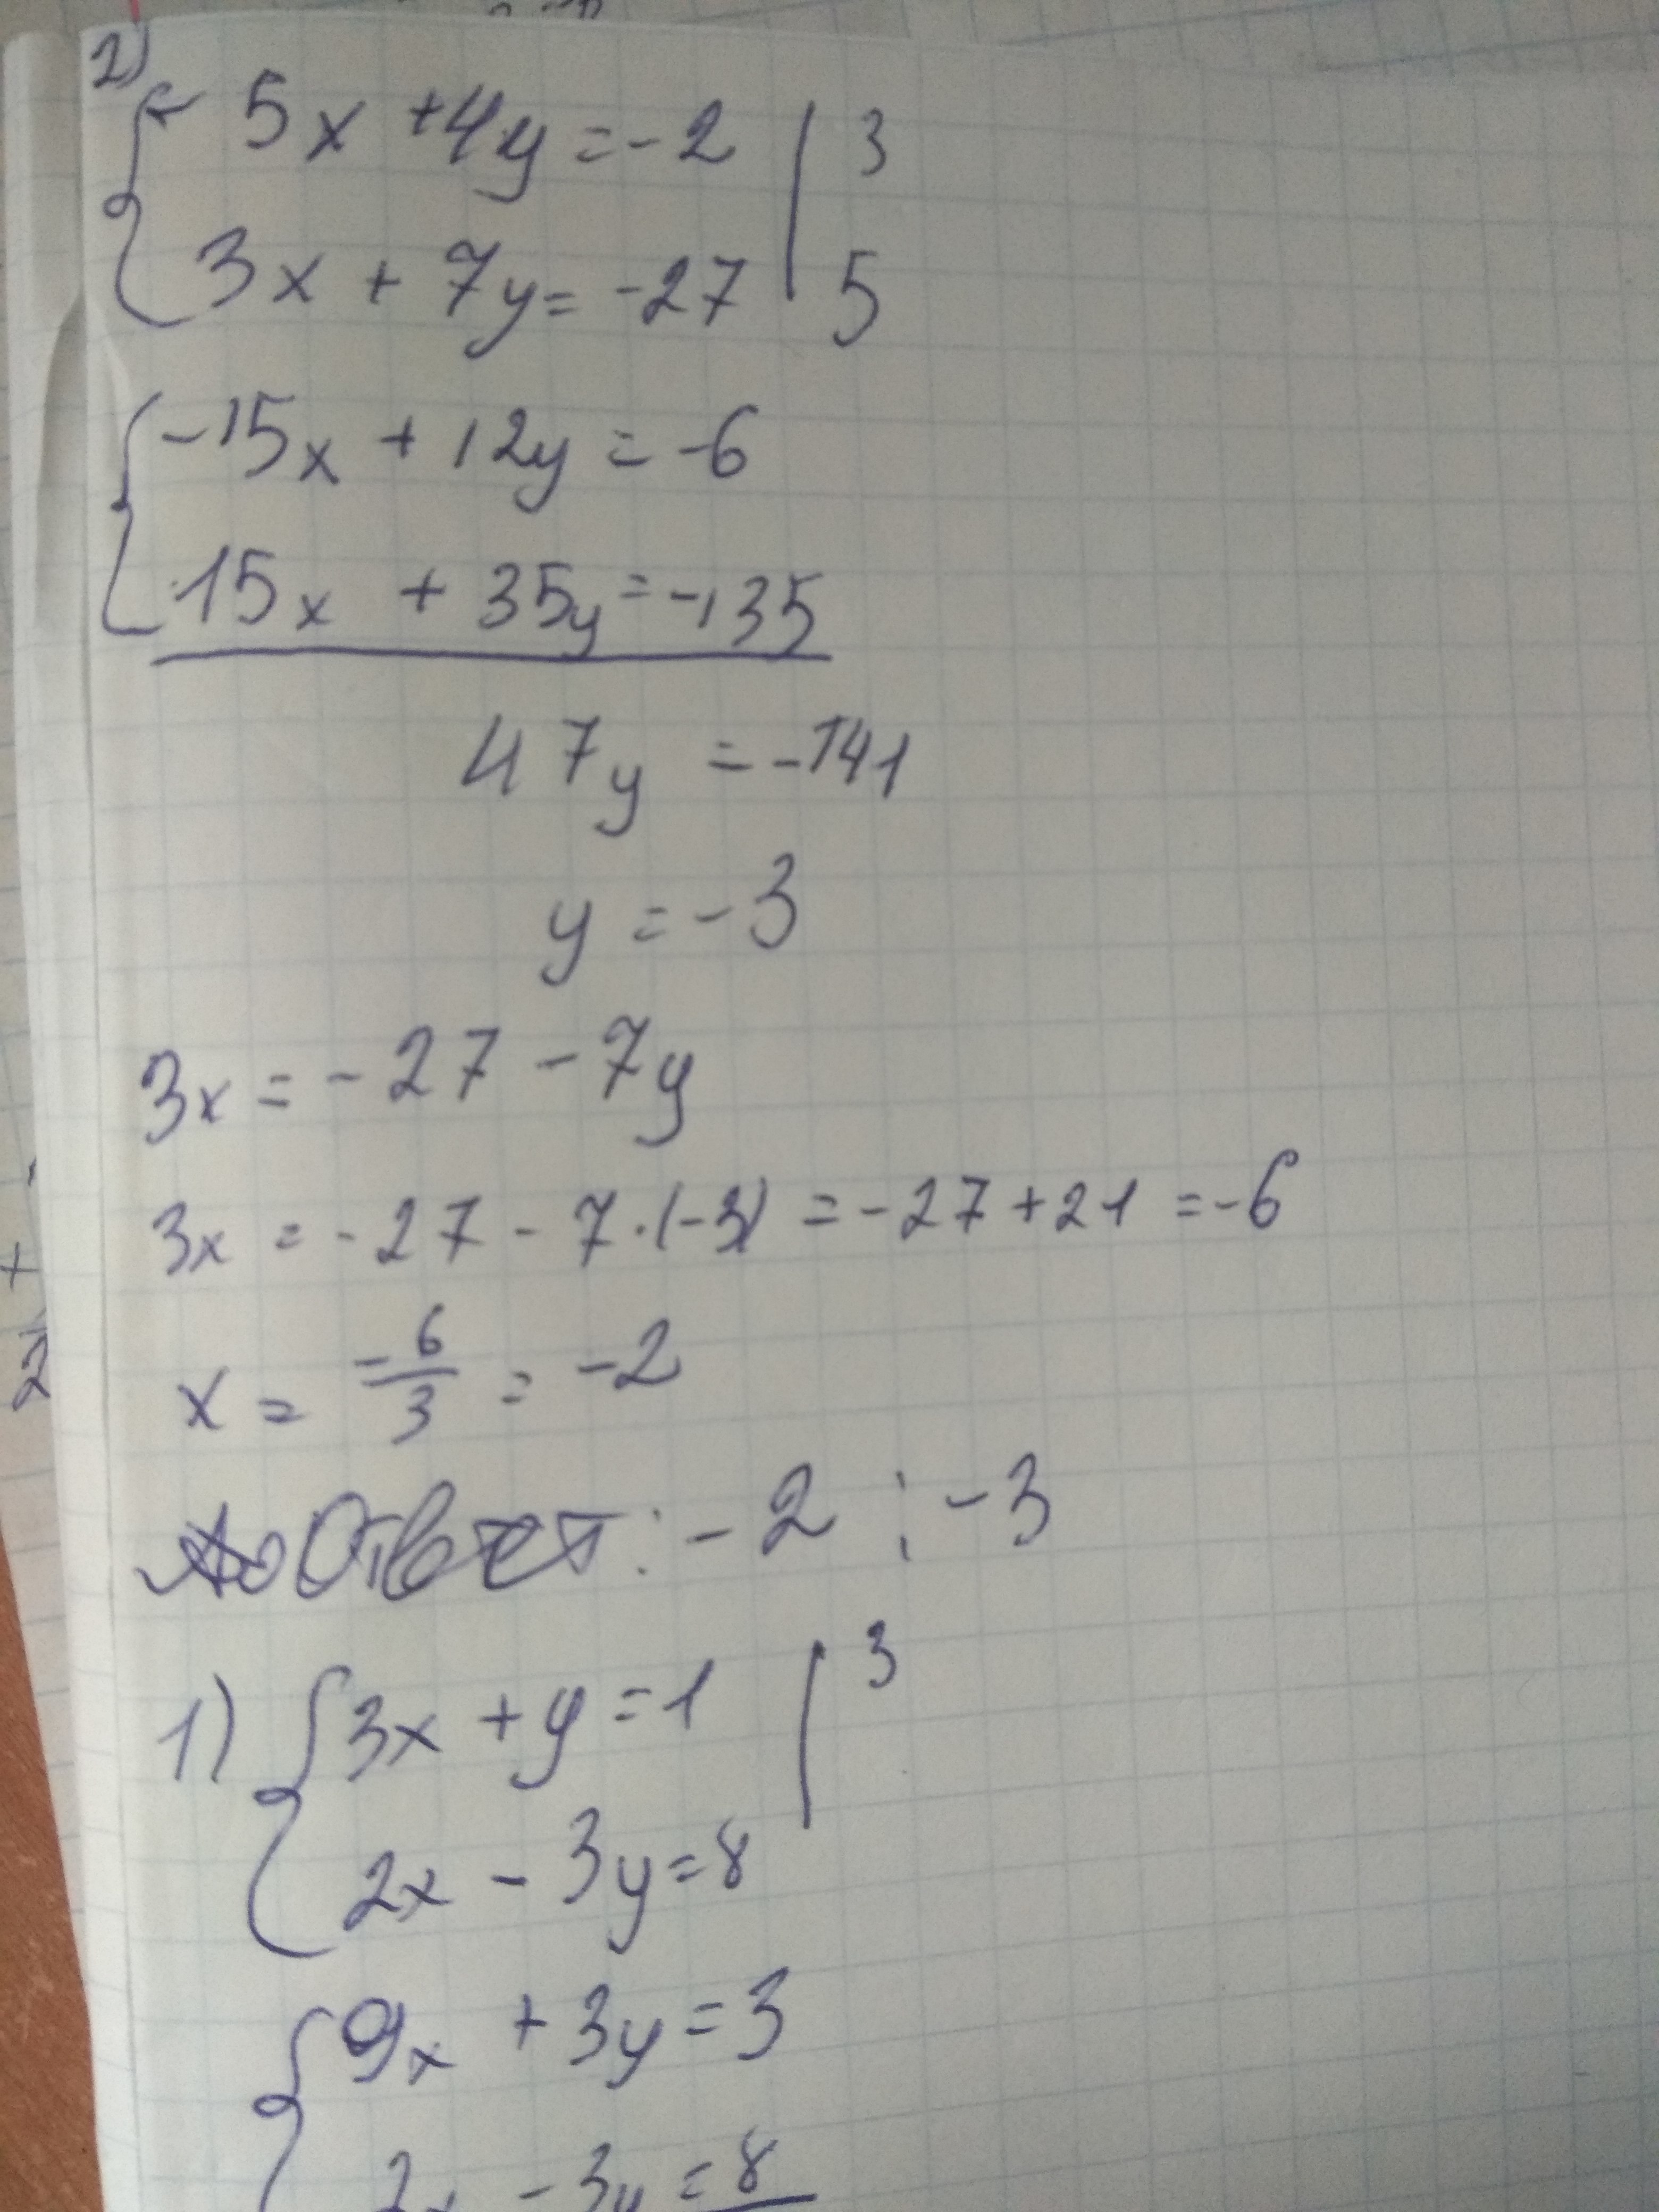 2)
- 5x + 4y = -2 | 3
3x + 7y = -27 | 5
-15x + 12y = -6
15x + 35y = -135
47y = -141
y = -3
3x = -27 - 7y
3x = -27 - 7·(-3) = -27 + 21 = -6
x = -6/3 = -2
Ответ: -2 ; -3
1) 3x + y = 1 | 3
2x - 3y = 8
9x + 3y = 3
2x - 3y = 8